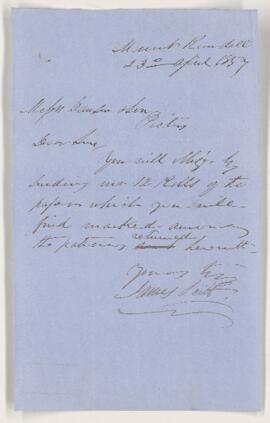 Mount Rundell
23rd April 1857
Messrs Dawson & Son
Dear Sirs
You will oblige by
sending me 12 Rolls of the
paper which you will
find marked among
the patterns returned herewith
Yours truly
James Scott